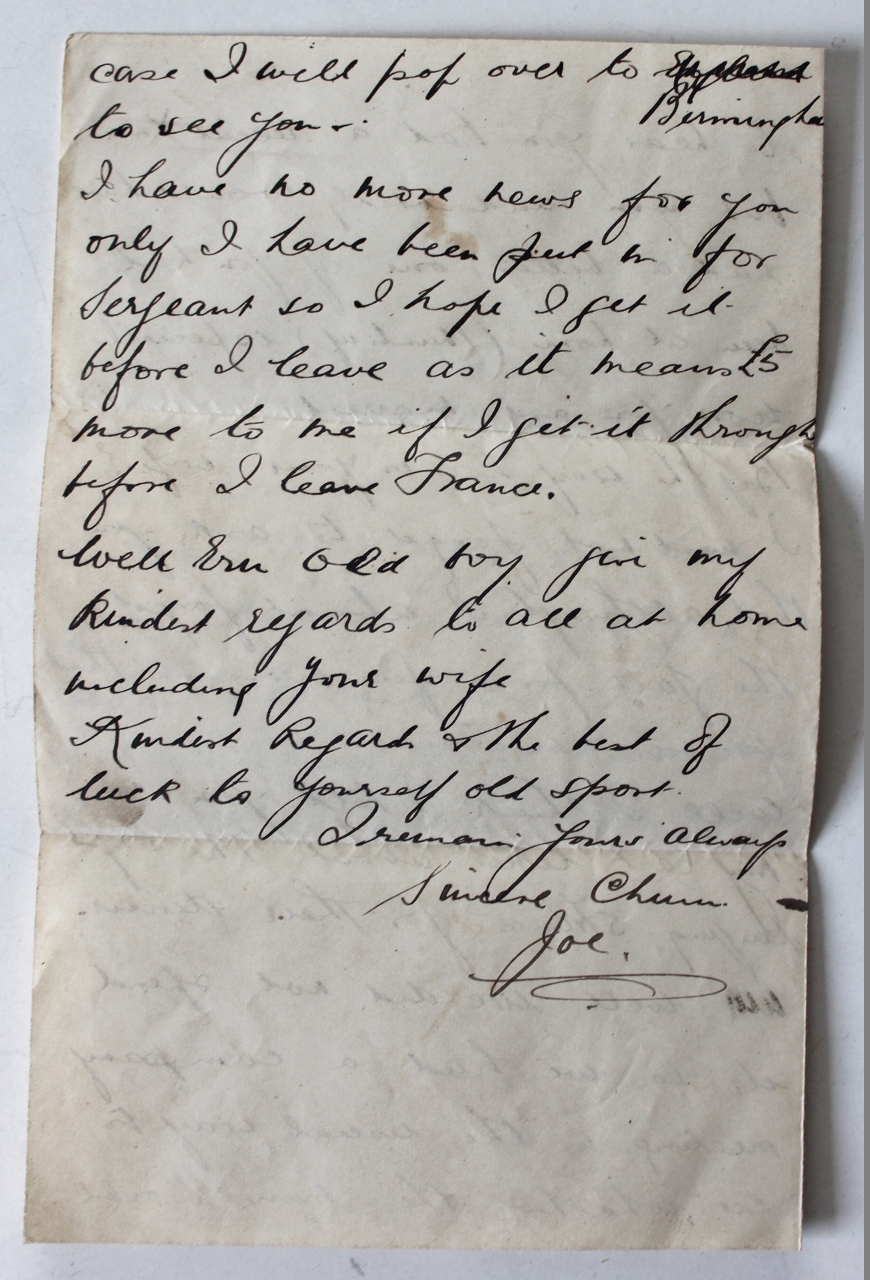 case I will pop over to England
Birmingha
to see you.
I have no more news for you
only I have been put in for
Sergeant so I hope I get it
before I leave as it means £5
more to me if I get it through
before I leave France.
Well Ern Old boy give my
Kindest regards to all at home
including your wife
Kindest Regards & the best of
luck to yourself old sport.
I remain yours always
Sincere Chum.
Joe.